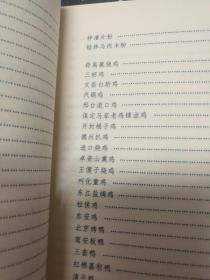 钟灌片粉
桂林马肉米粉
符离集烧鸡
三杯鸡
文昌白斩鸡
汽锅鸡
邢台道口鸡
保定马家老鸡铺卤鸡
开封桶子鸡
德州扒鸡
道口烧鸡
卓资山熏鸡
王傻子烧鸡
叫化童鸡
东江盐焗鸡
杜侯鸡
东安鸡
北京烤鸭
南安板鸭
三套鸭
红桃嘉积鸭